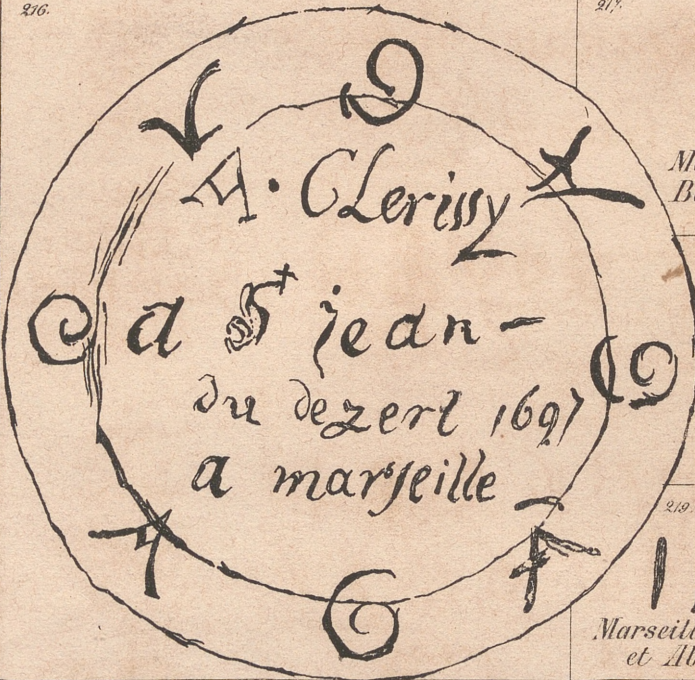 216.
217.
A. CLerissy
a St jean-
du dezert 1697
a marseille
219.
Marseill
et Al